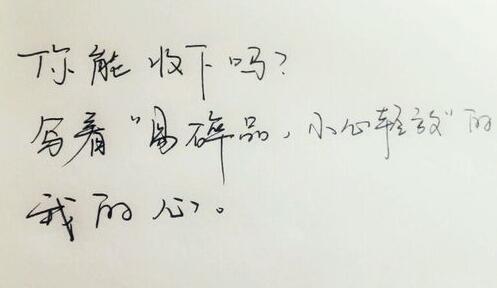 你能收下吗？
写着“易碎品，小心轻放”的
我的心。